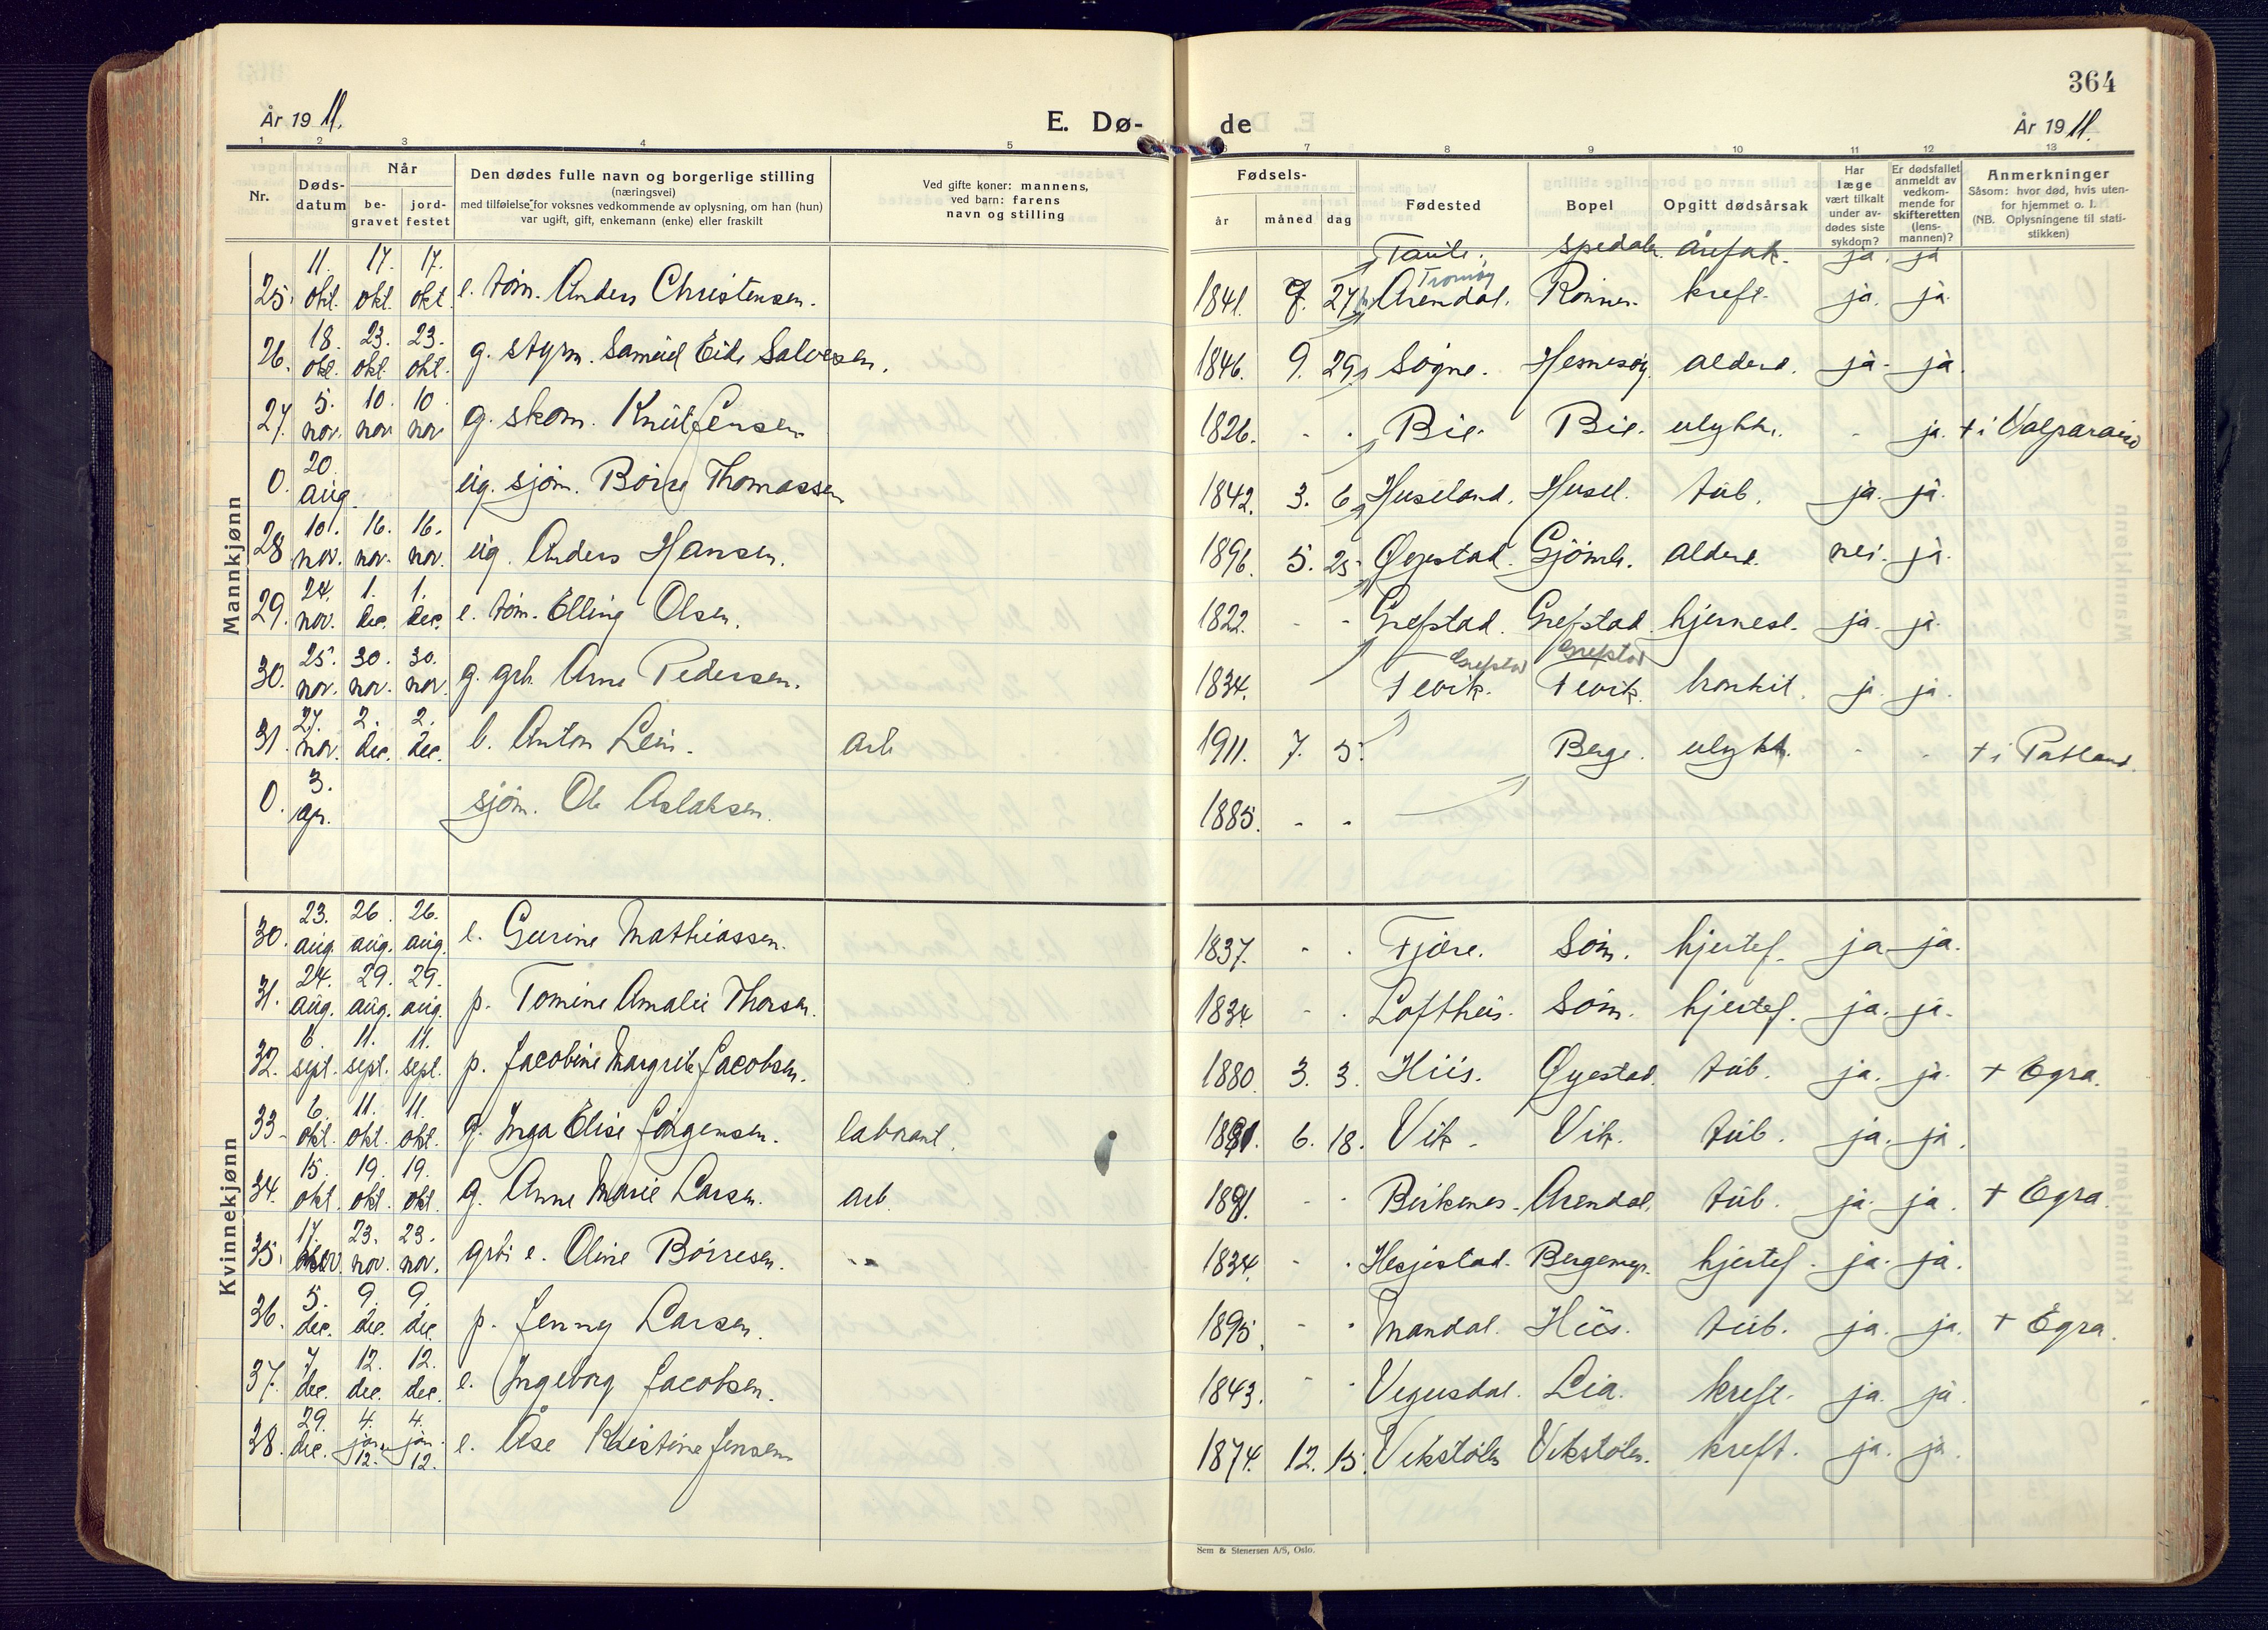 364
År 1911.
E. Dø-
de
År 1911.
1 2 3 4 5 6 7 8 9 10 11 12 13
Nr.
Døds-
datum
Når
be-
gravet
jord-
festet
Den dødes fulle navn og borgerlige stilling
(næringsvei)
med tilføielse for voksnes vedkommende av oplysning, om han (hun)
var ugift, gift, enkemann (enke) eller fraskilt
Ved gifte koner: mannens,
ved barn: farens
navn og stilling
Fødsels-
år måned dag
Fødested
Bopel
Opgitt dødsårsak
Har
læge
vært tilkalt
under av-
dødes siste
sykdom?
Er dødsfallet
anmeldt av
vedkom-
mende for
skifteretten
(lens-
mannen)?
Anmerkninger
Såsom: hvor død, hvis uten-
for hjemmet o. l.
(NB. Oplysningene til stati-
stikken)
Mannkjønn
spedalsk. årefork. ja. ja
25. 11. okt. 17. okt. 17. okt. e. tøm. Anders Christensen. 1841. 7. 27. Arendal. Tromøy Rønnes. kreft. ja. ja
26. 18. okt. 23. okt. 23. okt. g. styrm. Samuel Eide Salvesen. 1846. 9. 29. Søgne. Hesnesøy. alderd. ja. ja.
27. 5. nov. 10. nov 10. nov g. skom. Knut Jensen 1826. - . Bie. Bie. ulykk. - ja. + i Valparaiso
0. 20. aug. ug. sjøm. Børre Thomassen 1842. 3. 6. Huseland. Husel. tub. ja. ja.
28 10. nov. 16. nov. 16. nov. ug. Anders Hansen. 1896. 5. 25. Øyestad. Gjømle. alderd. nei. ja.
29. 24. nov. 1. dec. 1. dec. e. tøm. Elling Olsen. 1822. - - Grefstad. Grefstad. hjernesl. ja. ja.
30. 25. nov. 30. nov. 30. nov. g. grb. Arne Pedersen. 1834. Fevik. Grefstad Fevik. Grefstad bronkit. ja. ja.
31. 27. nov. 2. dec. 2. dec. b. Anton Leiv. arb 1911. 7. 5. Berge. ulykk. - - + i Portland.
0. 3. apr. sjøm. Ole Aslaksen. 1885. - -
Kvinnekjønn
30. 23. aug. 26. aug. 26. aug. e. Gurine Mathiassen. 1837. - . Fjære. Søm. hjertef. ja ja.
31. 24. aug. 29. aug. 29. aug. p. Tomine Amalie Thorsen. 1834 - . Lofthus. Søm. hjertef. ja. ja.
32. 6. sept. 11. sept. 11. sept. p. Jacobine Margrete Jacobsen. 1880. 3. 3. Hiis. Øyestad. tub. ja. ja. + Egra.
33. 6. okt. 11. okt. 11. okt. g. Inga Elise Jørgensen. laborant. 1881. 6. 18. Vik. Vik. tub. ja. ja.
34. 15. okt. 19. okt. 19. okt. g. Anne Marie Larsen. arb. 1891. - . Birkenes. Arendal. tub. ja. ja. + Egra.
35. 17. nov. 23. nov. 23. nov. grbr e. Oline Børresen. 1834. - . Hesjestad. Bergemyr. hjertef. ja. ja.
36. 5. dec. 9. dec. 9. dec. p. Jenny Larsen. 1895. - . Mandal. Hiis. tub. ja. ja. + Egra.
37. 7. dec. 12. dec. 12. dec. e. Ingeborg Jacobsen. 1843. - . Vegusdal. Lia. kreft. ja. ja.
38. 29. dec. 4. jan. 12. 4. jan. 12. e. Åse Kristine Jensen 1874. 12. 15. Vikstølen Vikstølen. kreft. ja. ja.
Sem & Stenersen A/S, Oslo.